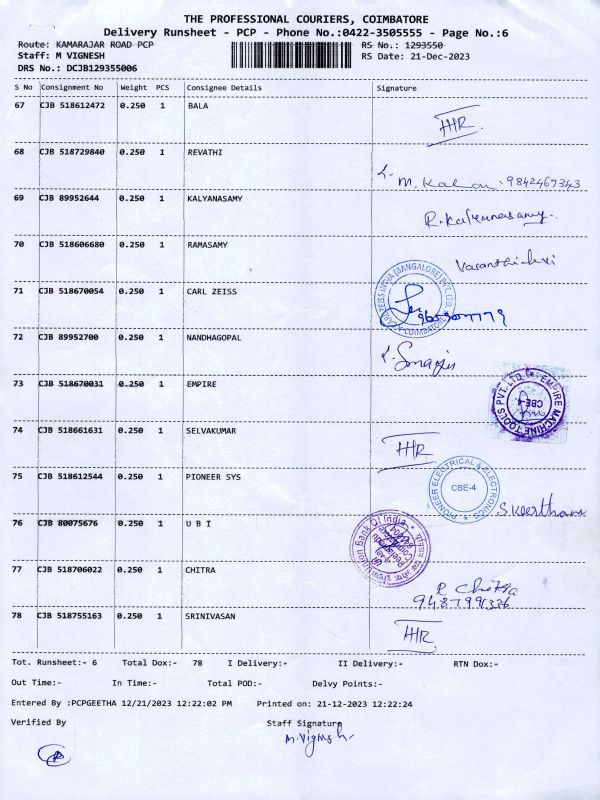 THE PROFESSIONAL COURIERS, COIMBATORE
Delivery Runsheet - PCP - Phone No.:0422-3505555 - Page No.:6
Route: KAMARAJAR ROAD PCP RS No.: 1293550
Staff: M VIGNESH RS Date: 21-Dec-2023
DRS No.: DCJB129355006
S No Consignment No Weight PCS Consignee Details Signature
67 CJB 518612472 0.250 1 BALA
68 CJB 518729840 0.250 1 REVATHI
M. Kala 9842467343
69 CJB 89952644 0.250 1 KALYANASAMY
R. Kalyanasamy
70 CJB 518606680 0.250 1 RAMASAMY
Vasanthidevi
71 CJB 518670054 0.250 1 CARL ZEISS
ZEISS INDIA (BANGALORE) PVT. LTD. COIMBATORE
72 CJB 89952700 0.250 1 NANDHAGOPAL
73 CJB 518670031 0.250 1 EMPIRE
EMPIRE MACHINE TOOLS PVT. LTD. CBE-4
74 CJB 518661631 0.250 1 SELVAKUMAR
75 CJB 518612544 0.250 1 PIONEER SYS
PIONEER ELECTRICAL & ELECTRONICS CBE-4
S Keerthana
76 CJB 80075676 0.250 1 U B I
Union Bank Of India
77 CJB 518706022 0.250 1 CHITRA
R Chitra
78 CJB 518755163 0.250 1 SRINIVASAN
Tot. Runsheet:- 6 Total Dox:- 78 I Delivery:- II Delivery:- RTN Dox:-
Out Time:- In Time:- Total POD:- Delvy Points:-
Entered By :PCPGEETHA 12/21/2023 12:22:02 PM Printed on: 21-12-2023 12:22:24
Verified By Staff Signature
M. Vignesh